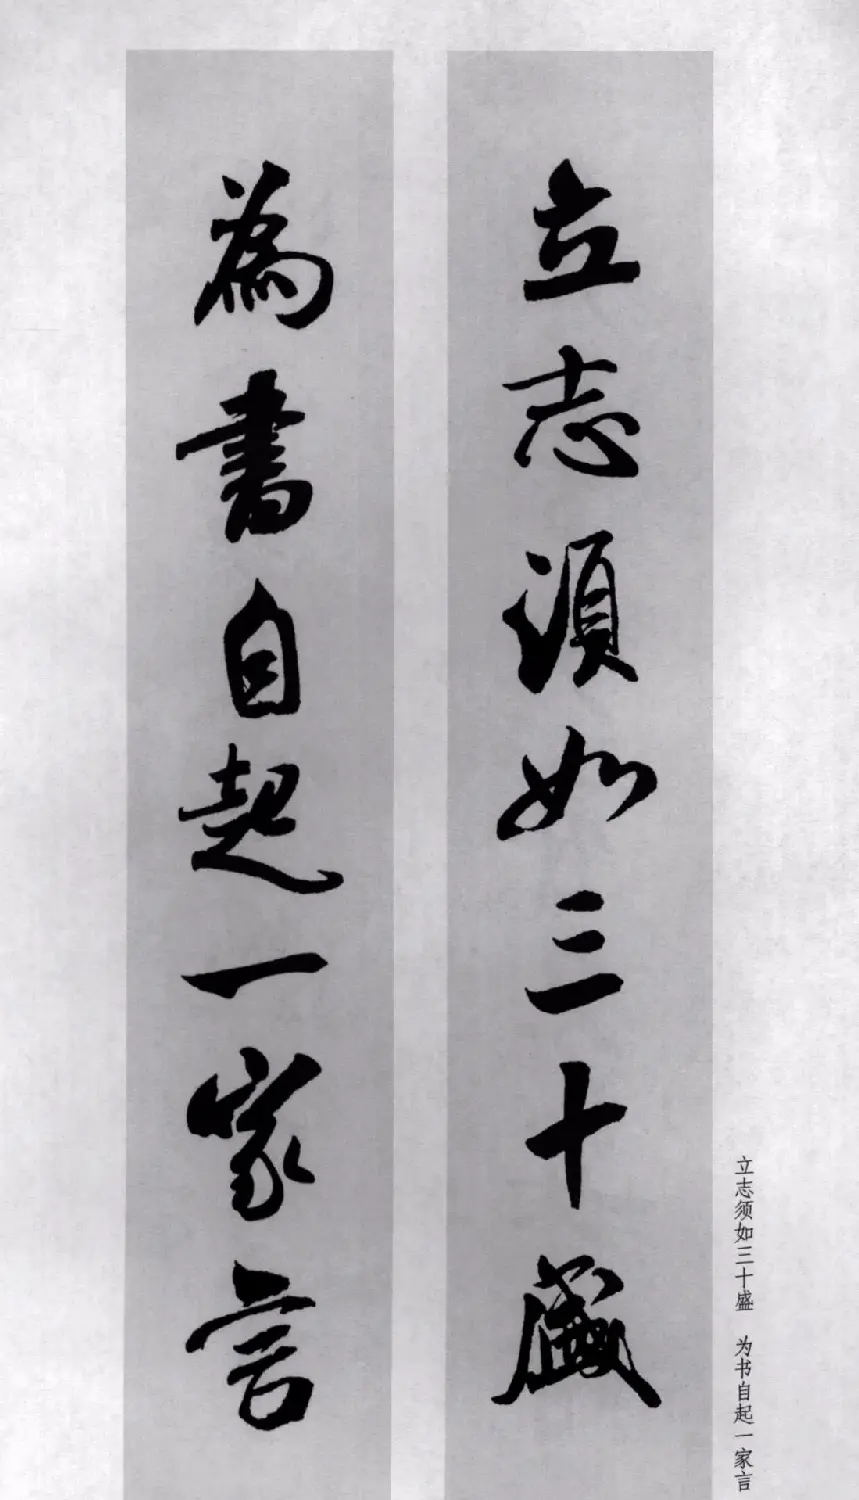 立志須如三十盛
為書自起一家言
立志须如三十盛 为书自起一家言